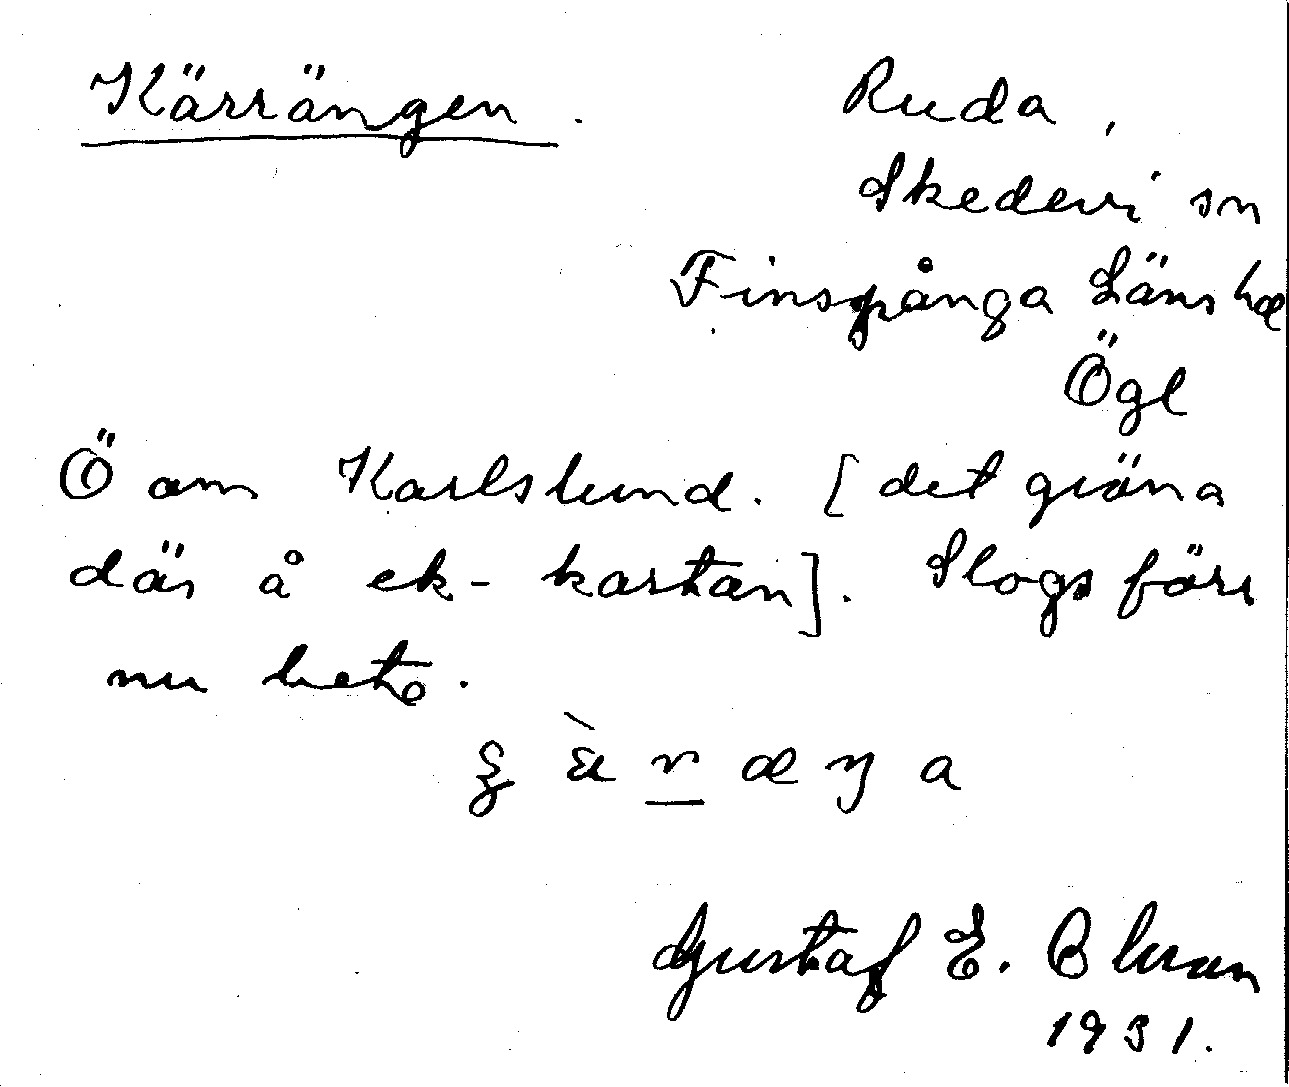 Kärrängen. Ruda,
Skedevi sn
Finspånga Läns hd
Ögl
Ö om Karlslund. [det gröna
där å ek-kartan]. Slogs förr
nu bete.
Gustaf E. Blman
1931.